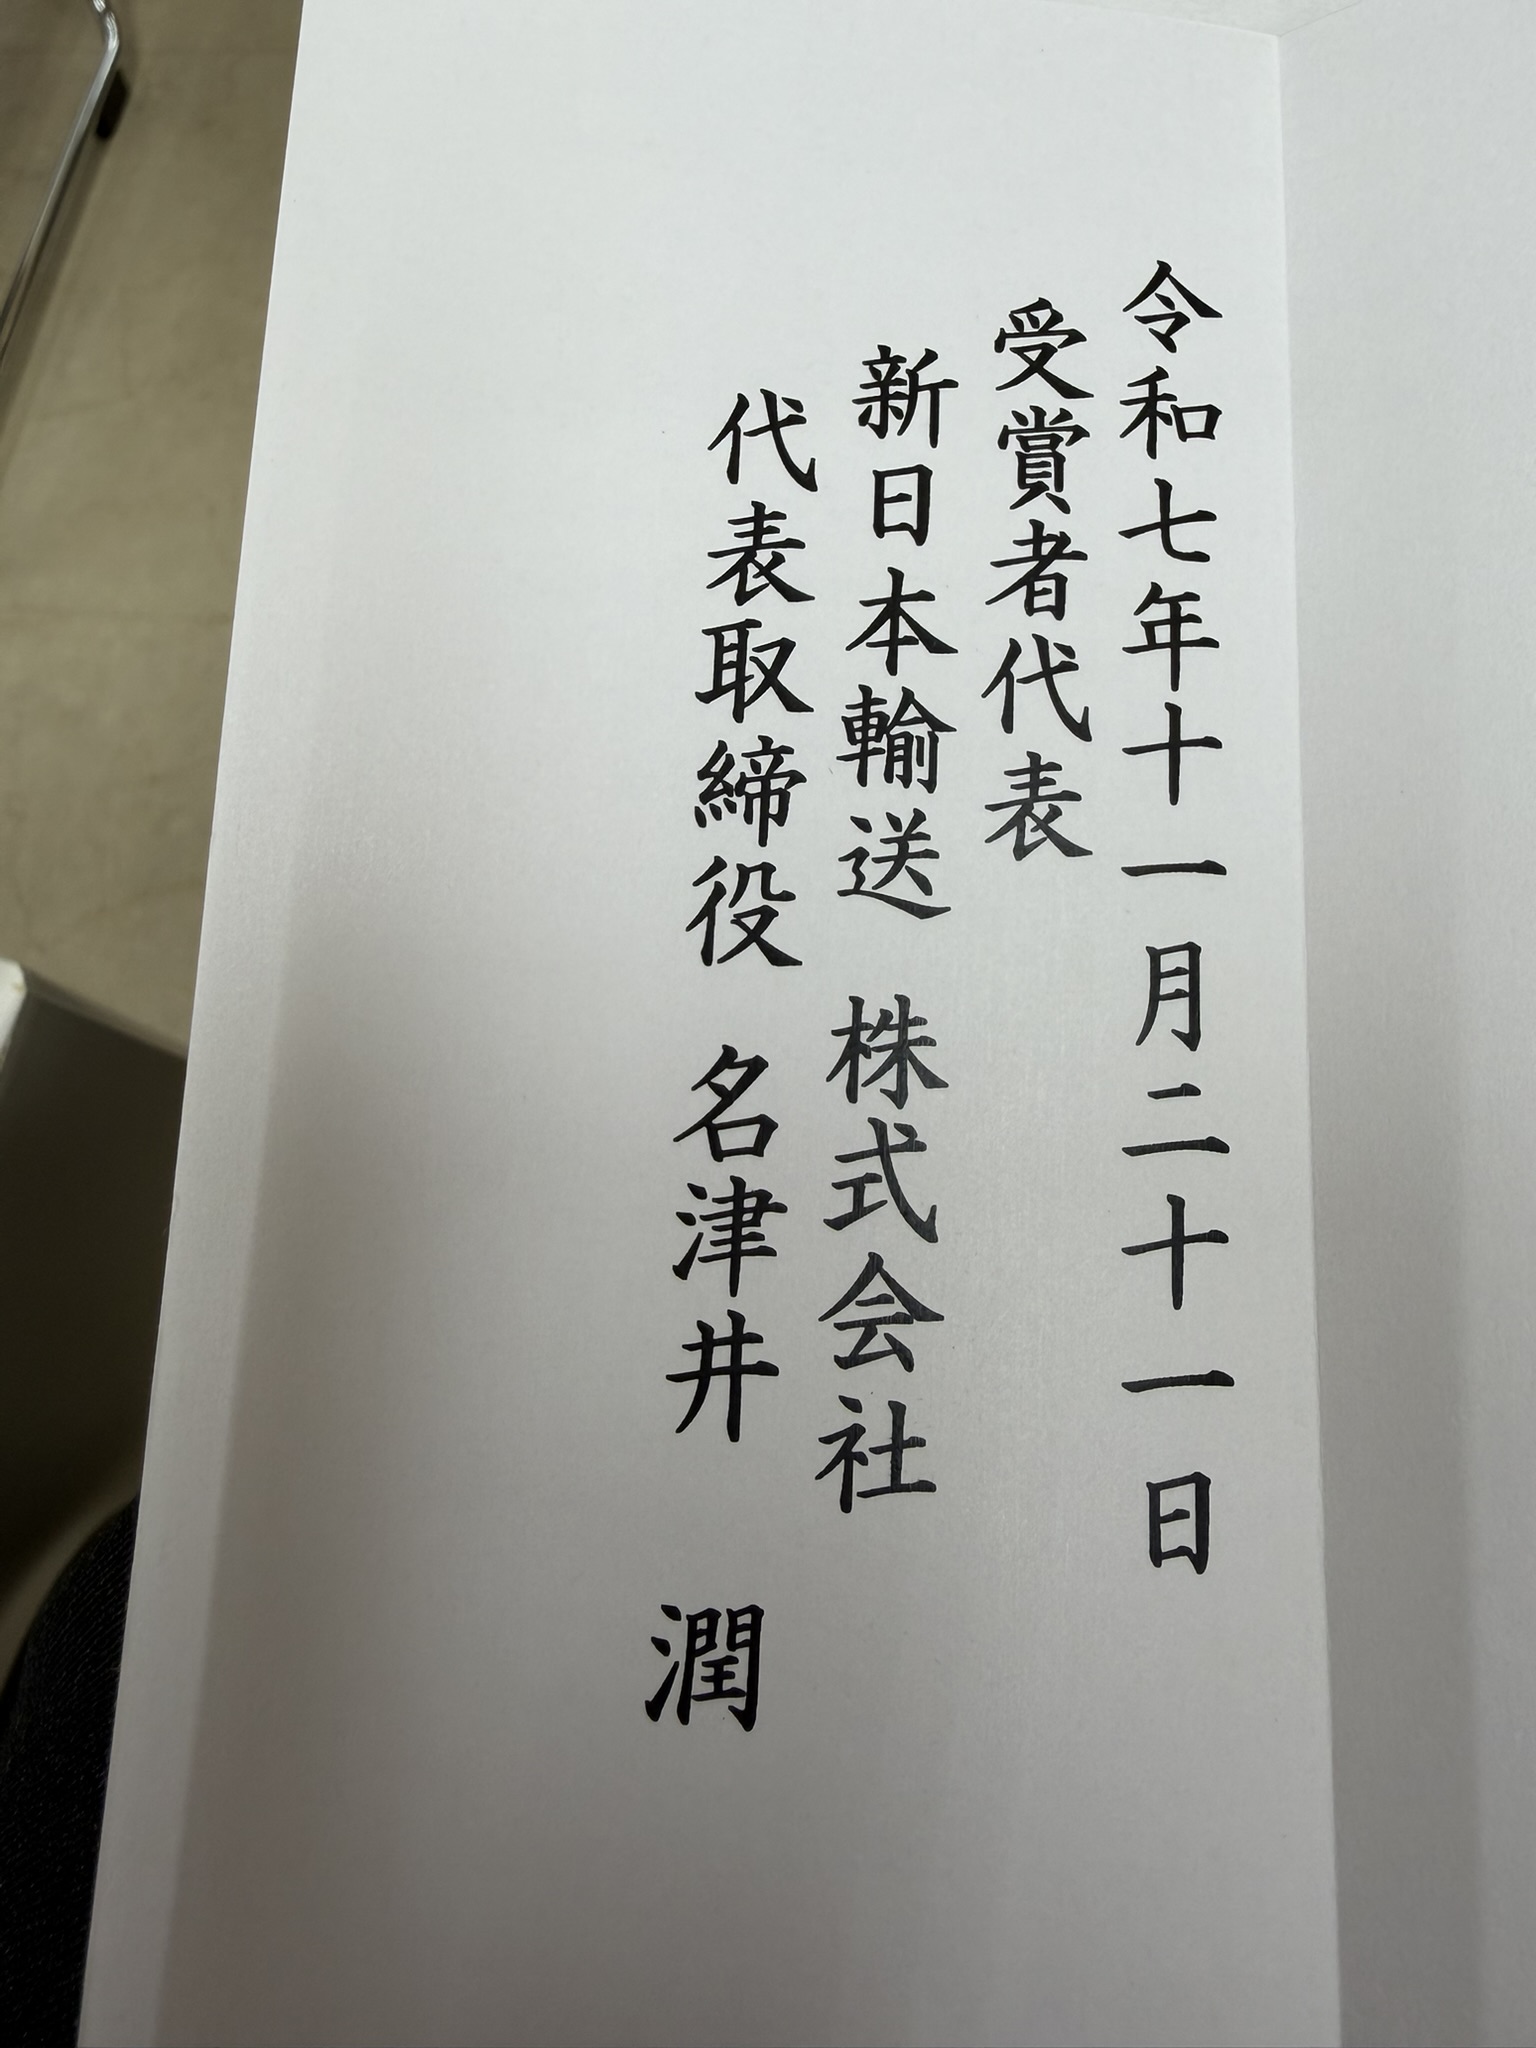 令和七年十一月二十一日
受賞者代表
新日本輸送 株式会社
代表取締役 名津井 潤